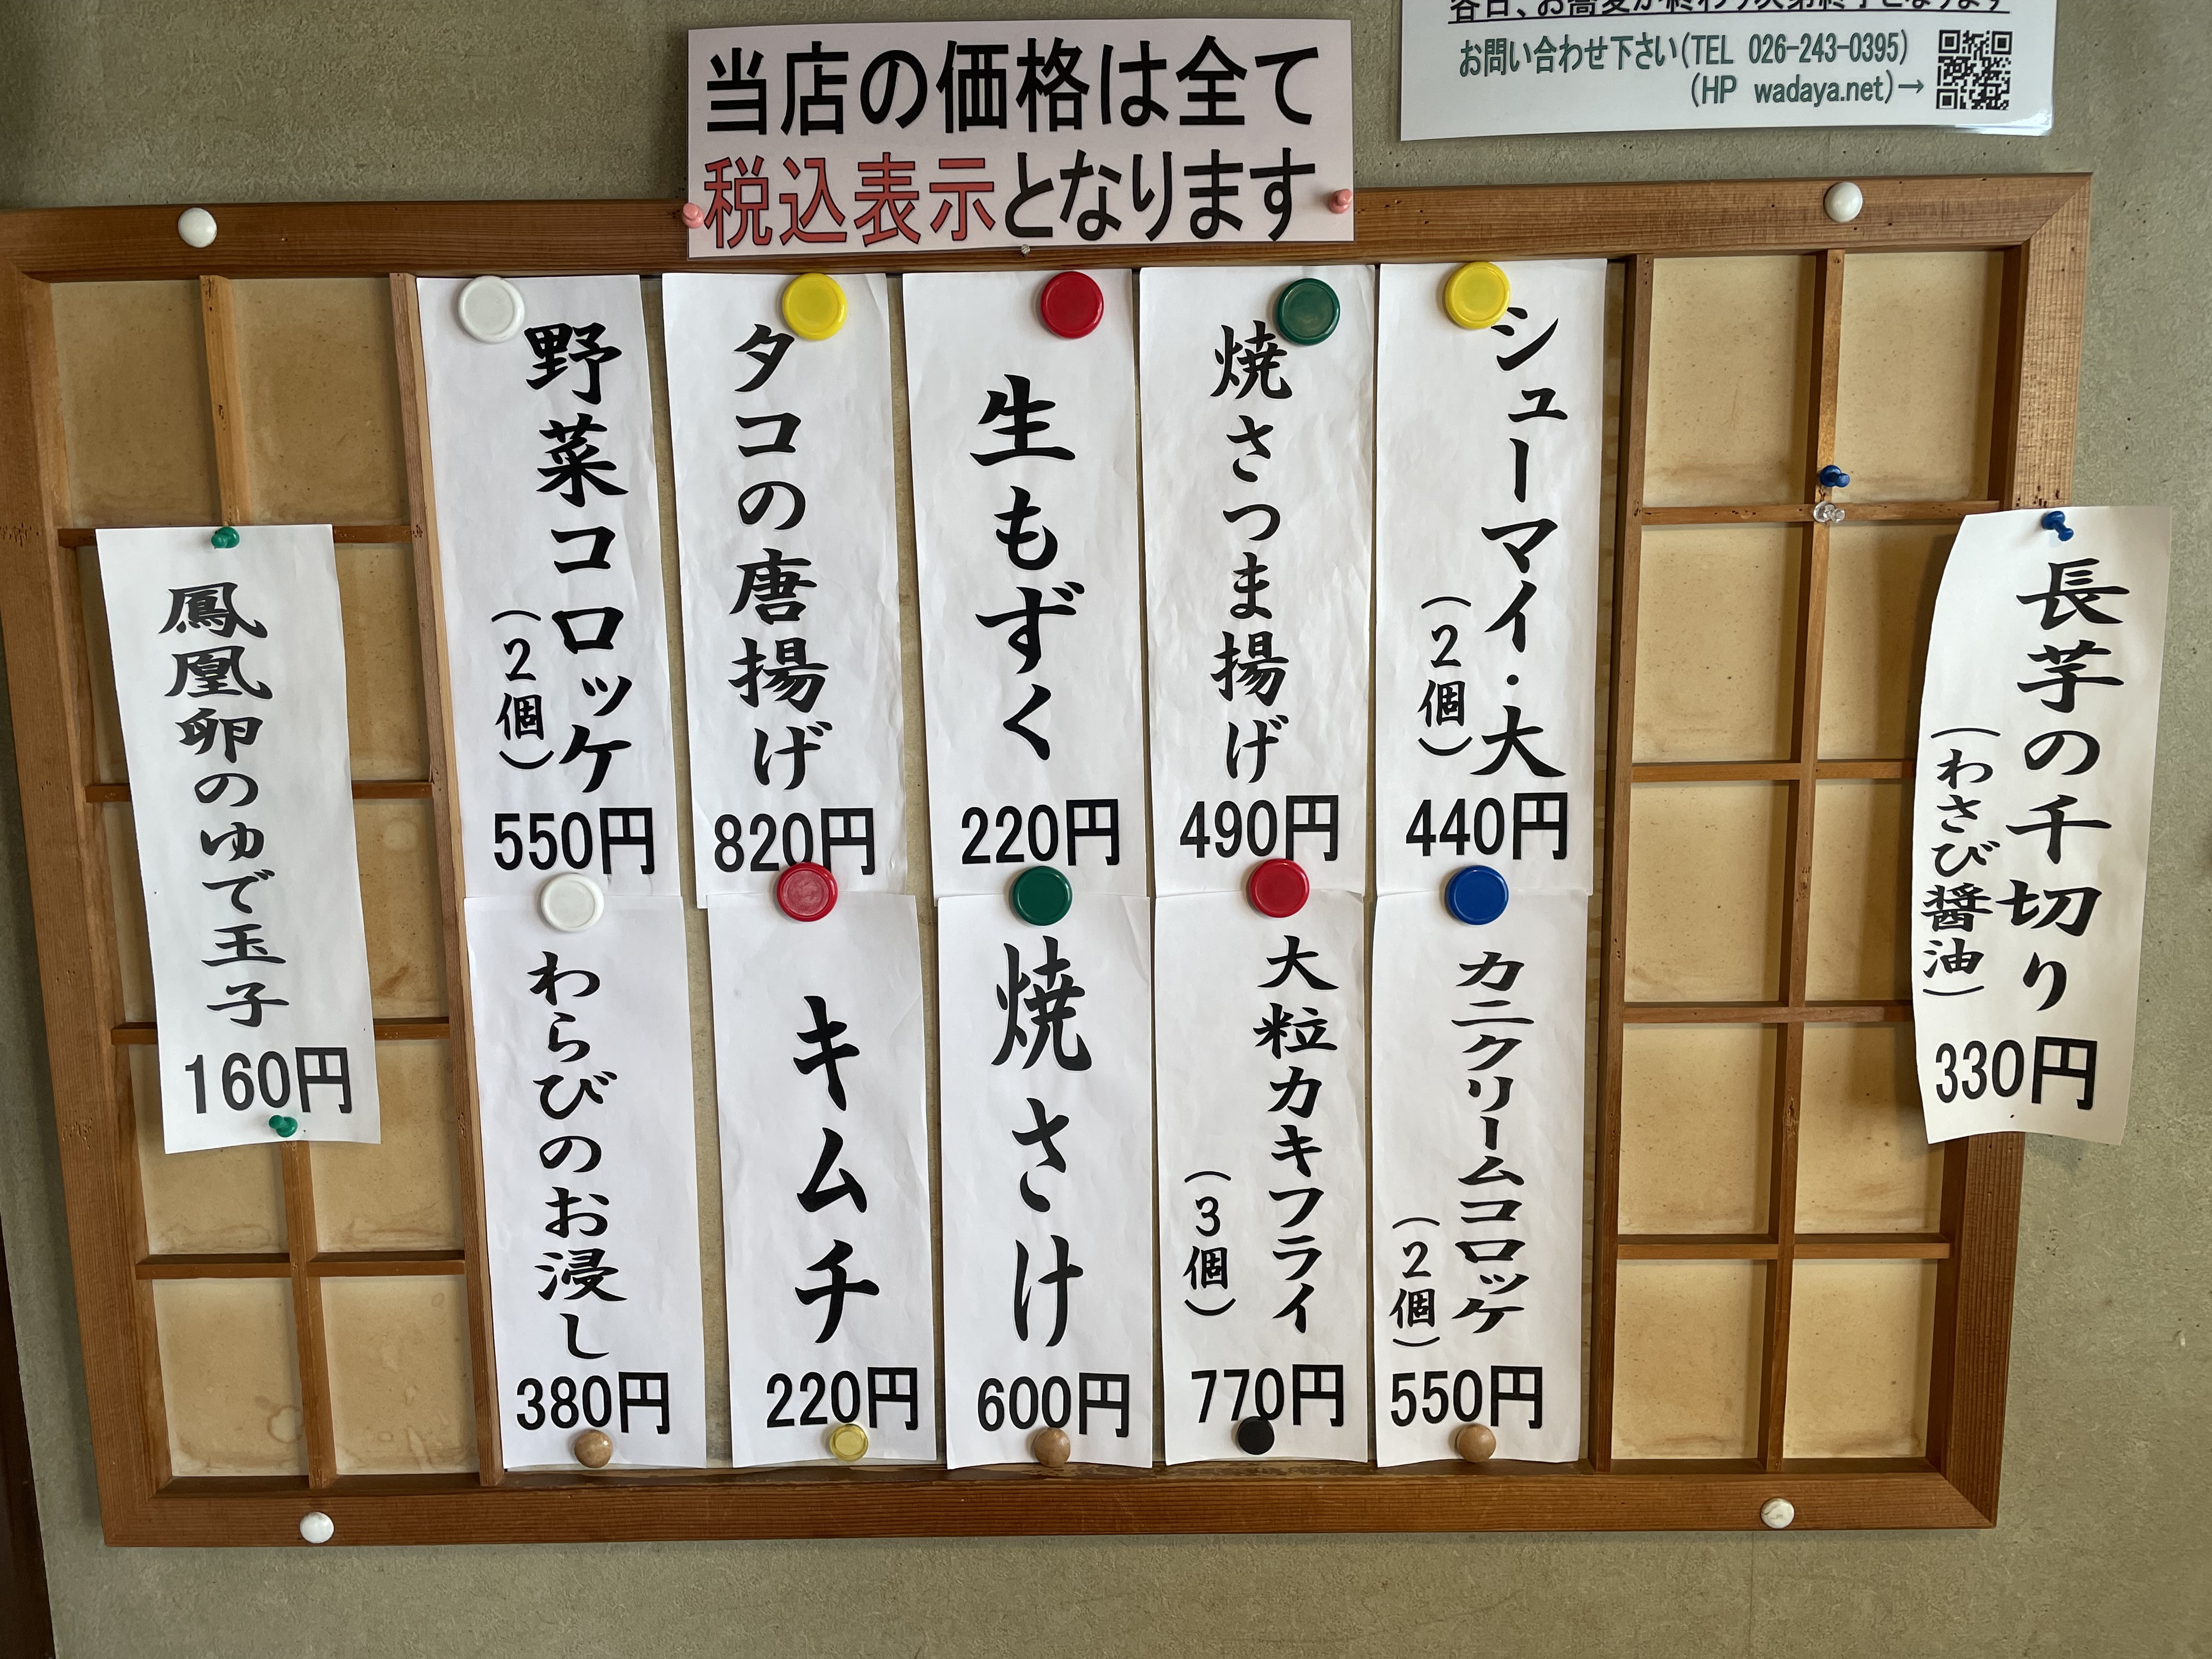 各日、お蕎麦が終わり次第終了となります
お問い合わせ下さい(TEL 026-243-0395)
(HP wadaya.net)→
当店の価格は全て
税込表示となります
長芋の千切り
(わさび醤油)
330円
シューマイ・大
(2個)
440円
焼さつま揚げ
490円
生もずく
220円
タコの唐揚げ
820円
野菜コロッケ
(2個)
550円
カニクリームコロッケ
(2個)
550円
大粒カキフライ
(3個)
770円
焼さけ
600円
キムチ
220円
わらびのお浸し
380円
鳳凰卵のゆで玉子
160円